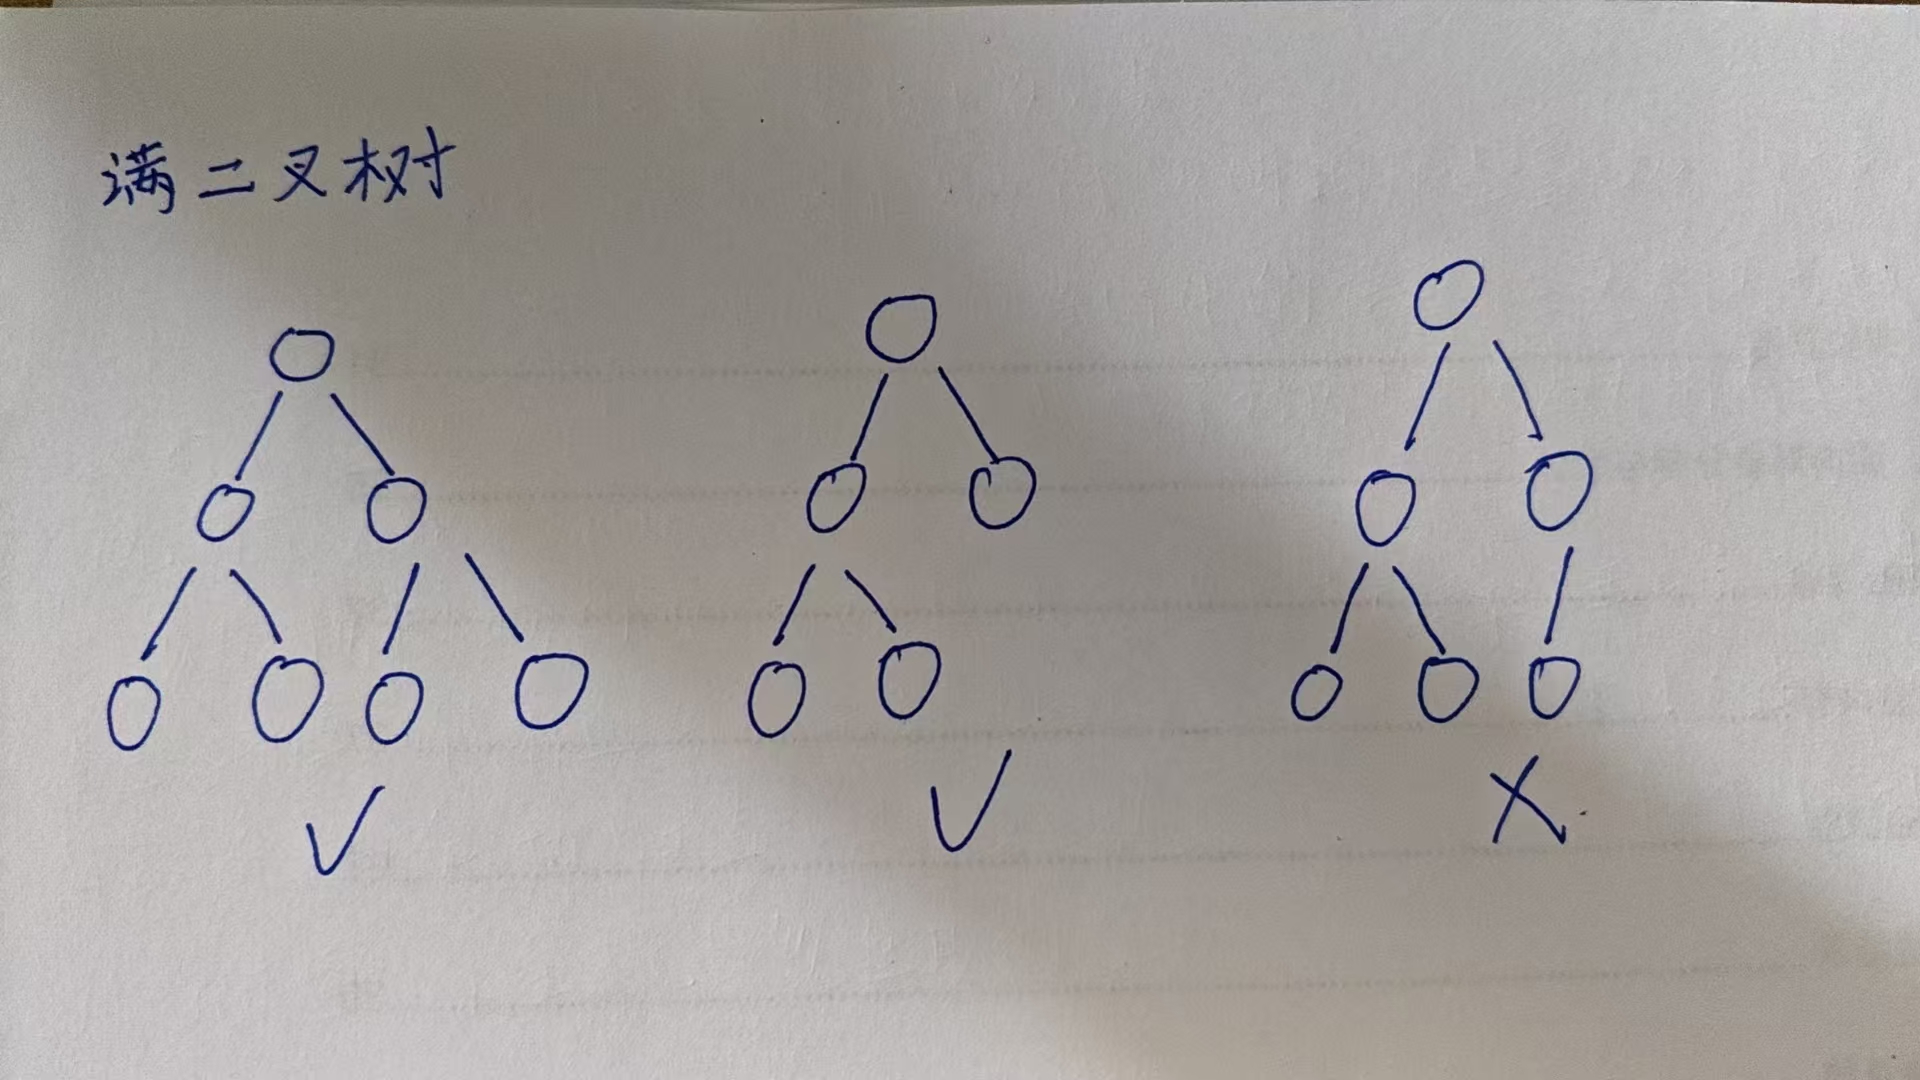 满二叉树